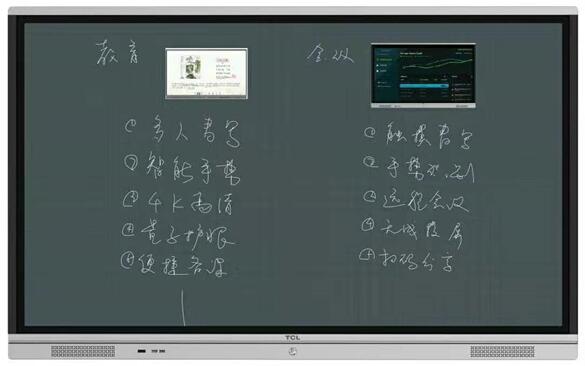 教育
① 多人書写
② 智能手势
③ 4K高清
④ 量子护眼
⑤ 便捷备课
会议
① 触摸書写
② 手势识别
③ 远程会议
④ 无线投屏
⑤ 扫码分享
TCL